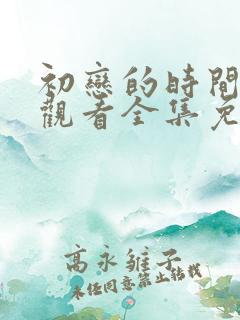 初戀的時間
觀看全集免
高永雛子
未任同意禁止轉載